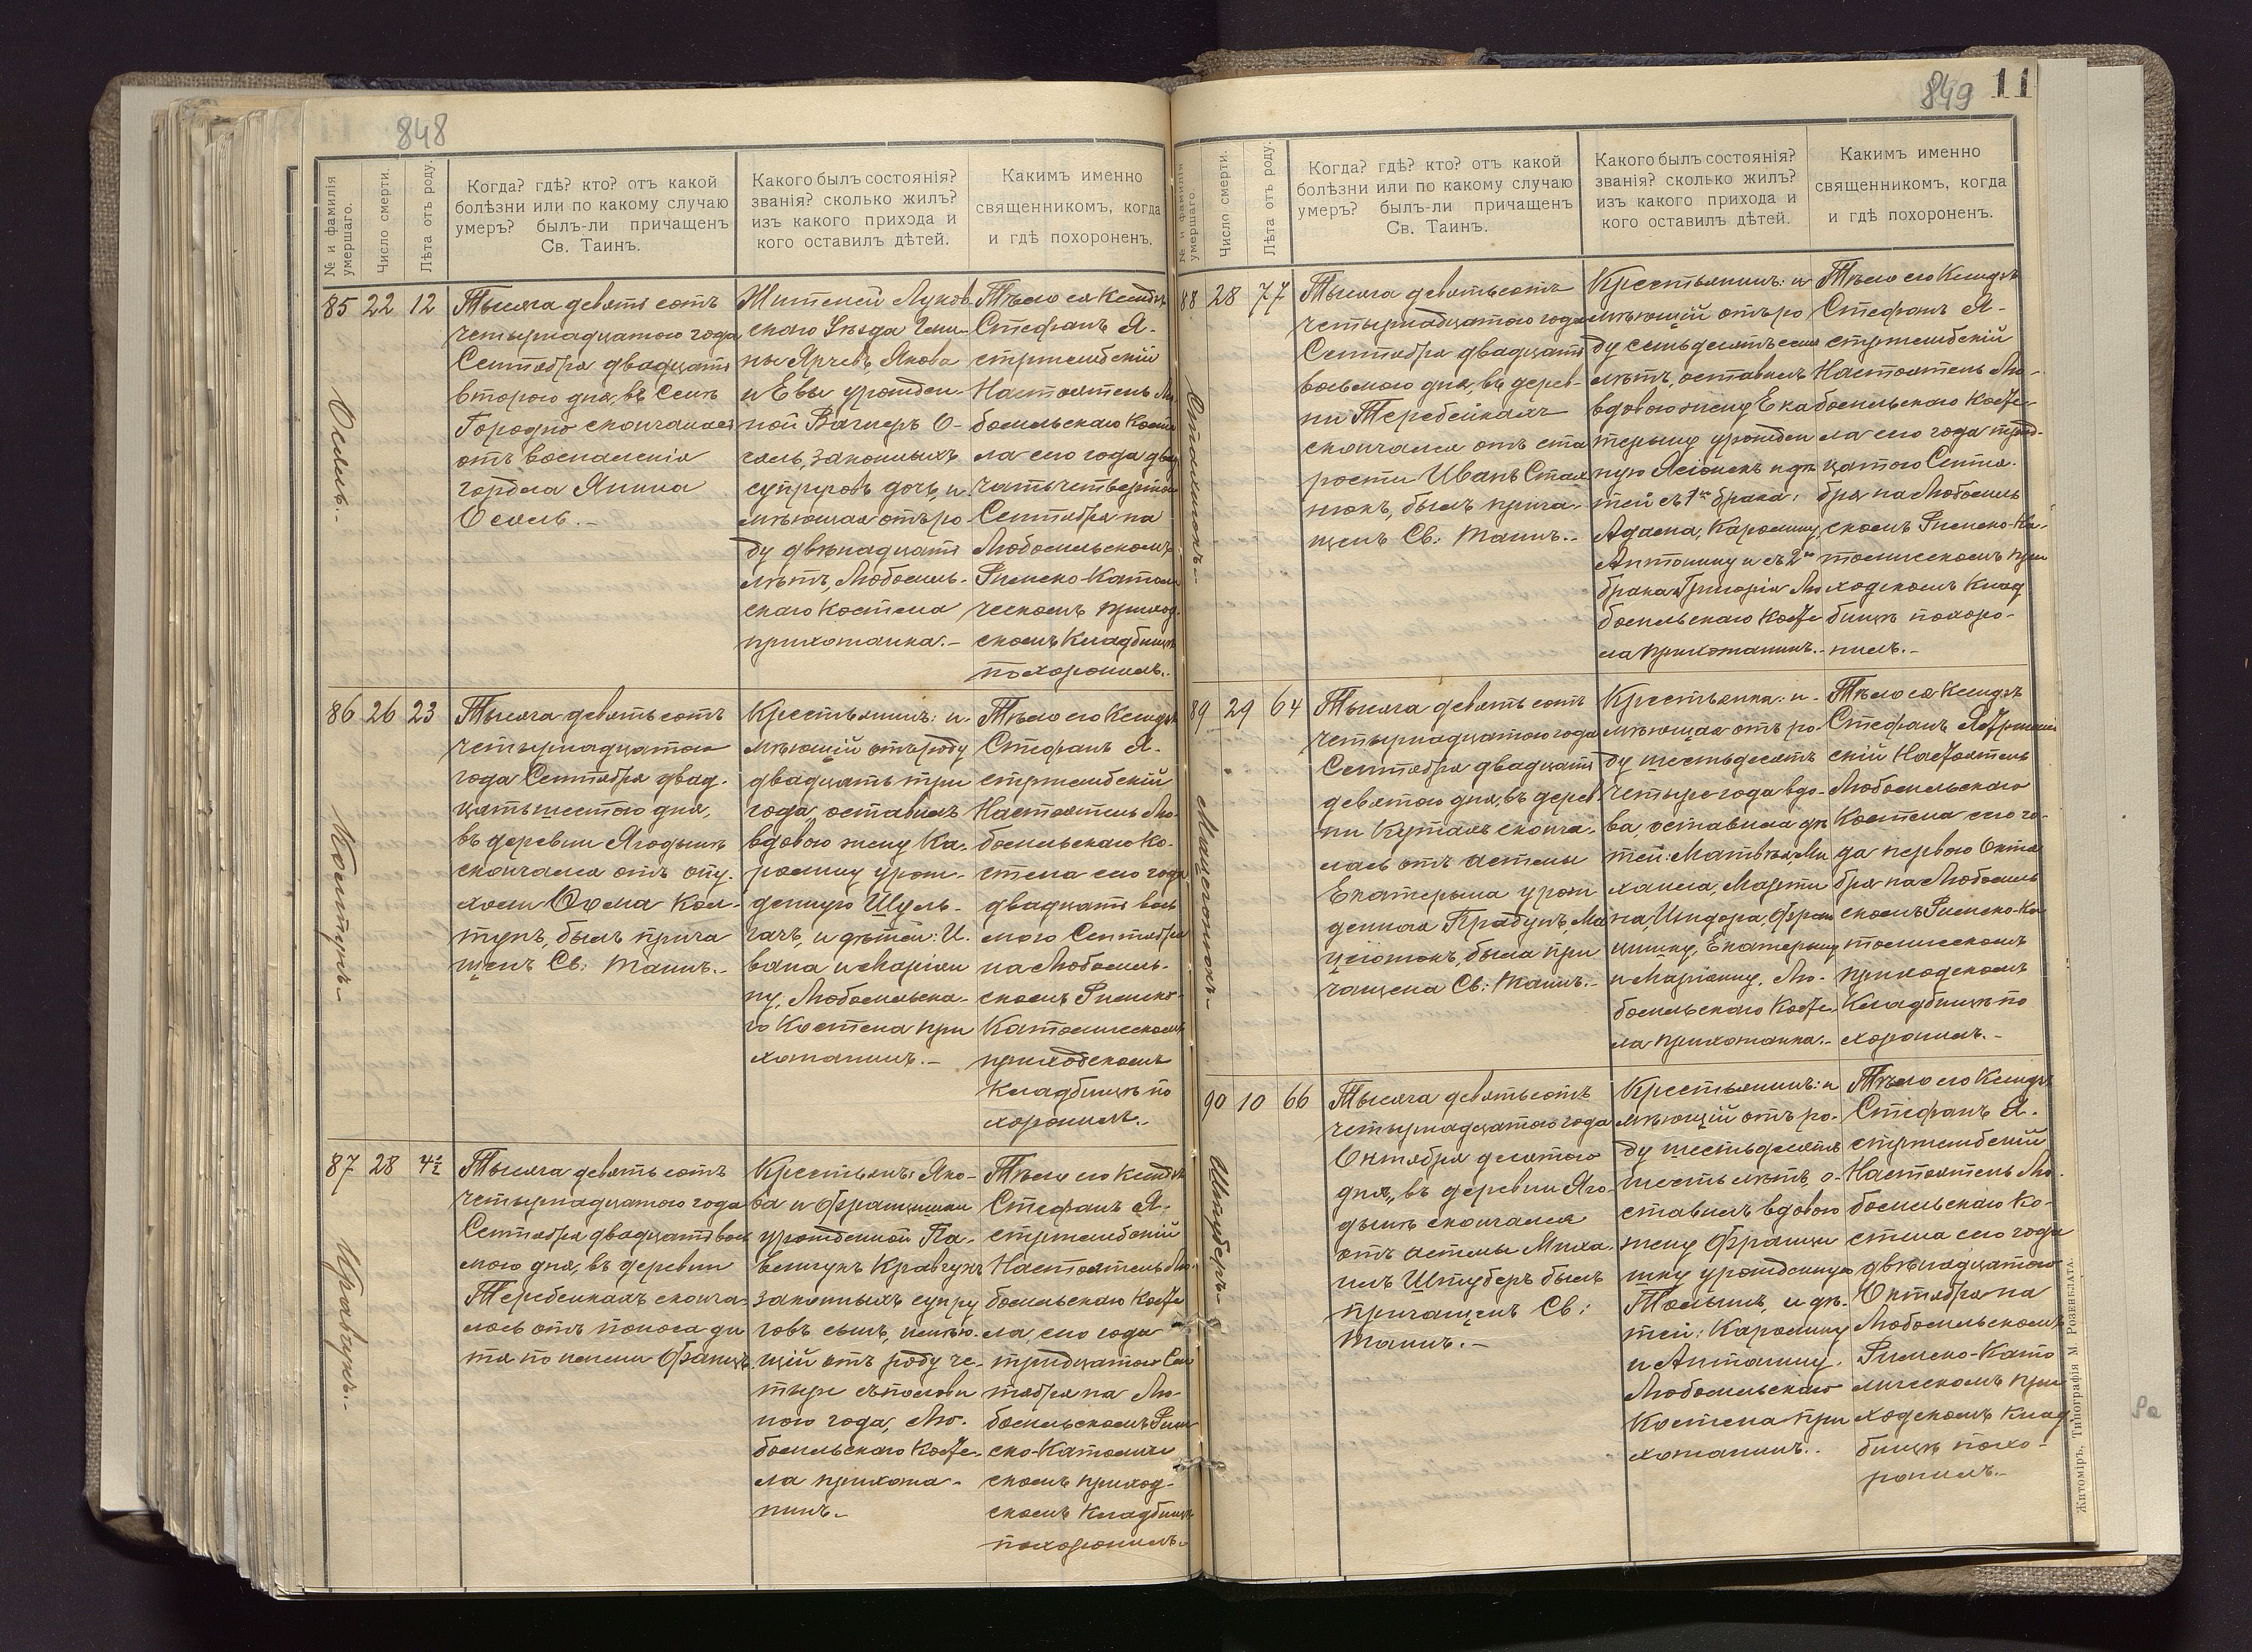 848
№ и фамилія умершаго.
Число смерти.
Лѣта отъ роду.
Когда? гдѣ? кто? отъ какой
болѣзни или по какому случаю
умеръ? былъ-ли причащенъ
Св. Таинъ.
Какого былъ состоянія?
званія? сколько жилъ?
изъ какого прихода и
кого оставилъ дѣтей.
Какимъ именно
священникомъ, когда
и гдѣ похороненъ.
85 22 12
Тысяча девять сотъ
четырнадцатого года
Сентября двадцать
второго дня, въ Селѣ
Городно скончалась
отъ воспаленія
горла Янина
Осаль.-
Жителей Луков-
скаго Уѣзда Гми-
ны Ярчевъ Якова
и Евы урожден-
ной Вагнеръ О-
саль, законныхъ
супруговъ дочь, и-
мѣющая отъ ро-
ду двѣнадцать
лѣтъ, Любомль-
скаго Костела
прихожанка.-
Тѣло ея Ксендзъ
Стефанъ Я-
стржембскій
Настоятель Лю-
бомльскаго Косте
ла сего года два
дцать четвертаго
Сентября на
Любомльскомъ
Римско-Католи
ческомъ приход-
скомъ Кладбищѣ
похоронилъ.-
86 26 23
Тысяча девять сотъ
четырнадцатого
года Сентября двад-
цать шестого дня,
въ деревни Ягодынѣ
скончался отъ опу-
холи Ѳома Кол-
тунъ, былъ прича
щенъ Св: Таинъ.-
Колтунъ.-
Крестьянинъ: и-
мѣющій отъ роду
двадцать три
года, оставилъ
вдовою жену Ка-
ролину урож-
денную Шуль-
гачъ, и дѣтей: И-
вана и Маріан
ну, Любомльска-
го Костела при
хожанинъ.-
Тѣло его Ксендзъ
Стефанъ Я-
стржембскій
Настоятель Лю-
бомльскаго Ко-
стела сего года
двадцать вось
мого Сентября
на Любомль-
скомъ Римско-
Католическомъ
приходскомъ
Кладбищѣ по
хоронилъ.-
87 28 4½
Тысяча девять сотъ
четырнадцатого года
Сентября двадцать вось
мого дня, въ деревни
Теребейкахъ сконча-
лось отъ поноса ди
тя по имени Францъ.
Кравчукъ.-
Крестьянъ: Яко-
ва и Францишки
урожденной Па-
венчукъ Кравчукъ
законныхъ супру
говъ сынъ, имѣю-
щій отъ роду че-
тыре съ полови
ною года, Лю-
бомльскаго Косте-
ла прихожа-
нинъ.-
Тѣло его Ксендзъ
Стефанъ Я-
стржембскій
Настоятель Лю-
бомльскаго Косте
ла, сего года
тридцатого Сен
тября на Лю-
бомльскомъ Рим
ско-Католиче
скомъ приход-
скомъ Кладбищѣ
похоронилъ.-
849 11
№ и фамилія умершаго.
Число смерти.
Лѣта отъ роду.
Когда? гдѣ? кто? отъ какой
болѣзни или по какому случаю
умеръ? былъ-ли причащенъ
Св. Таинъ.
Какого былъ состоянія?
званія? сколько жилъ?
изъ какого прихода и
кого оставилъ дѣтей.
Какимъ именно
священникомъ, когда
и гдѣ похороненъ.
88 28 77
Тысяча девять сотъ
четырнадцатого года
Сентября двадцать
восьмого дня, въ дерев-
ни Теребейкахъ
скончался отъ ста
рости Иванъ Стах
нюкъ, былъ прича-
щенъ Св: Таинъ.-
Стахнюкъ.-
Крестьянинъ: и
мѣющій отъ ро
ду семьдесятъ семь
лѣтъ, оставилъ
вдовою жену Ека
терину урожден
ную Ясіонекъ и дѣ
тей съ 1го брака:
Адама, Каролину,
Антонину и съ 2го
брака Григорія Лю
бомльскаго Косте
ла прихожанинъ.-
Тѣло его Ксендзъ
Стефанъ Я-
стржембскій
Настоятель Лю-
бомльскаго Косте-
ла сего года трид-
цатого Сентя-
бря на Любомль
скомъ Римско-Ка-
толическомъ при
ходскомъ Клад
бищѣ похоро-
нилъ.-
89 29 64
Тысяча девять сотъ
четырнадцатого года
Сентября двадцать
девятого дня, въ дерев
ни Кутахъ сконча-
лась отъ астмы
Екатерина урож
денная Прадунъ, Ма
ціотокъ, была при
чащена Св: Таинъ.-
Крестьянка: и-
мѣющая отъ ро-
ду шестьдесятъ
четыре года вдо-
ва, оставила дѣ
тей: Матвѣя, Ми
хаила, Марти
на, Изидора, Фран
цишку, Екатерину
и Маріанну, Лю-
бомльскаго Косте-
ла прихожанка.-
Тѣло ея Ксендзъ
Стефанъ Ястржемб
скій Настоятель
Любомльскаго
Костела сего го-
да первого Октя
бря на Любомль
скомъ Римско-Ка
толическомъ
приходскомъ
Кладбищѣ по
хоронилъ.-
90 10 66
Тысяча девять сотъ
четырнадцатого года
Октября десятого
дня, въ деревни Яго-
дынѣ скончался
отъ астмы Миха-
илъ Штуберъ былъ
причащенъ Св:
Таинъ.-
Штуберъ.-
Крестьянинъ: и
мѣющій отъ ро-
ду шестьдесятъ
шесть лѣтъ, о-
ставилъ вдовою
жену Францы
шку урожденную
и дѣ-
тей: Каролину
и Антонину.
Любомльскаго
Костела при
хожанинъ..
Тѣло его Ксендзъ
Стефанъ Я-
стржембскій
Настоятель Лю-
бомльскаго Ко-
стела сего года
двѣнадцатого
Октября на
Любомльскомъ
Римско-Като
лическомъ при
ходскомъ Клад
бищѣ похо-
ронилъ.-
Житоміръ, Типографія М. Ровенблата.